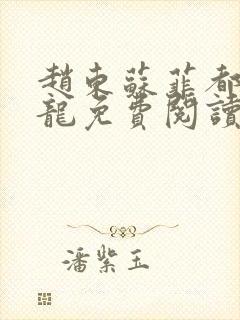 趙東蘇菲都
龍免費閱讀
潘紫玉